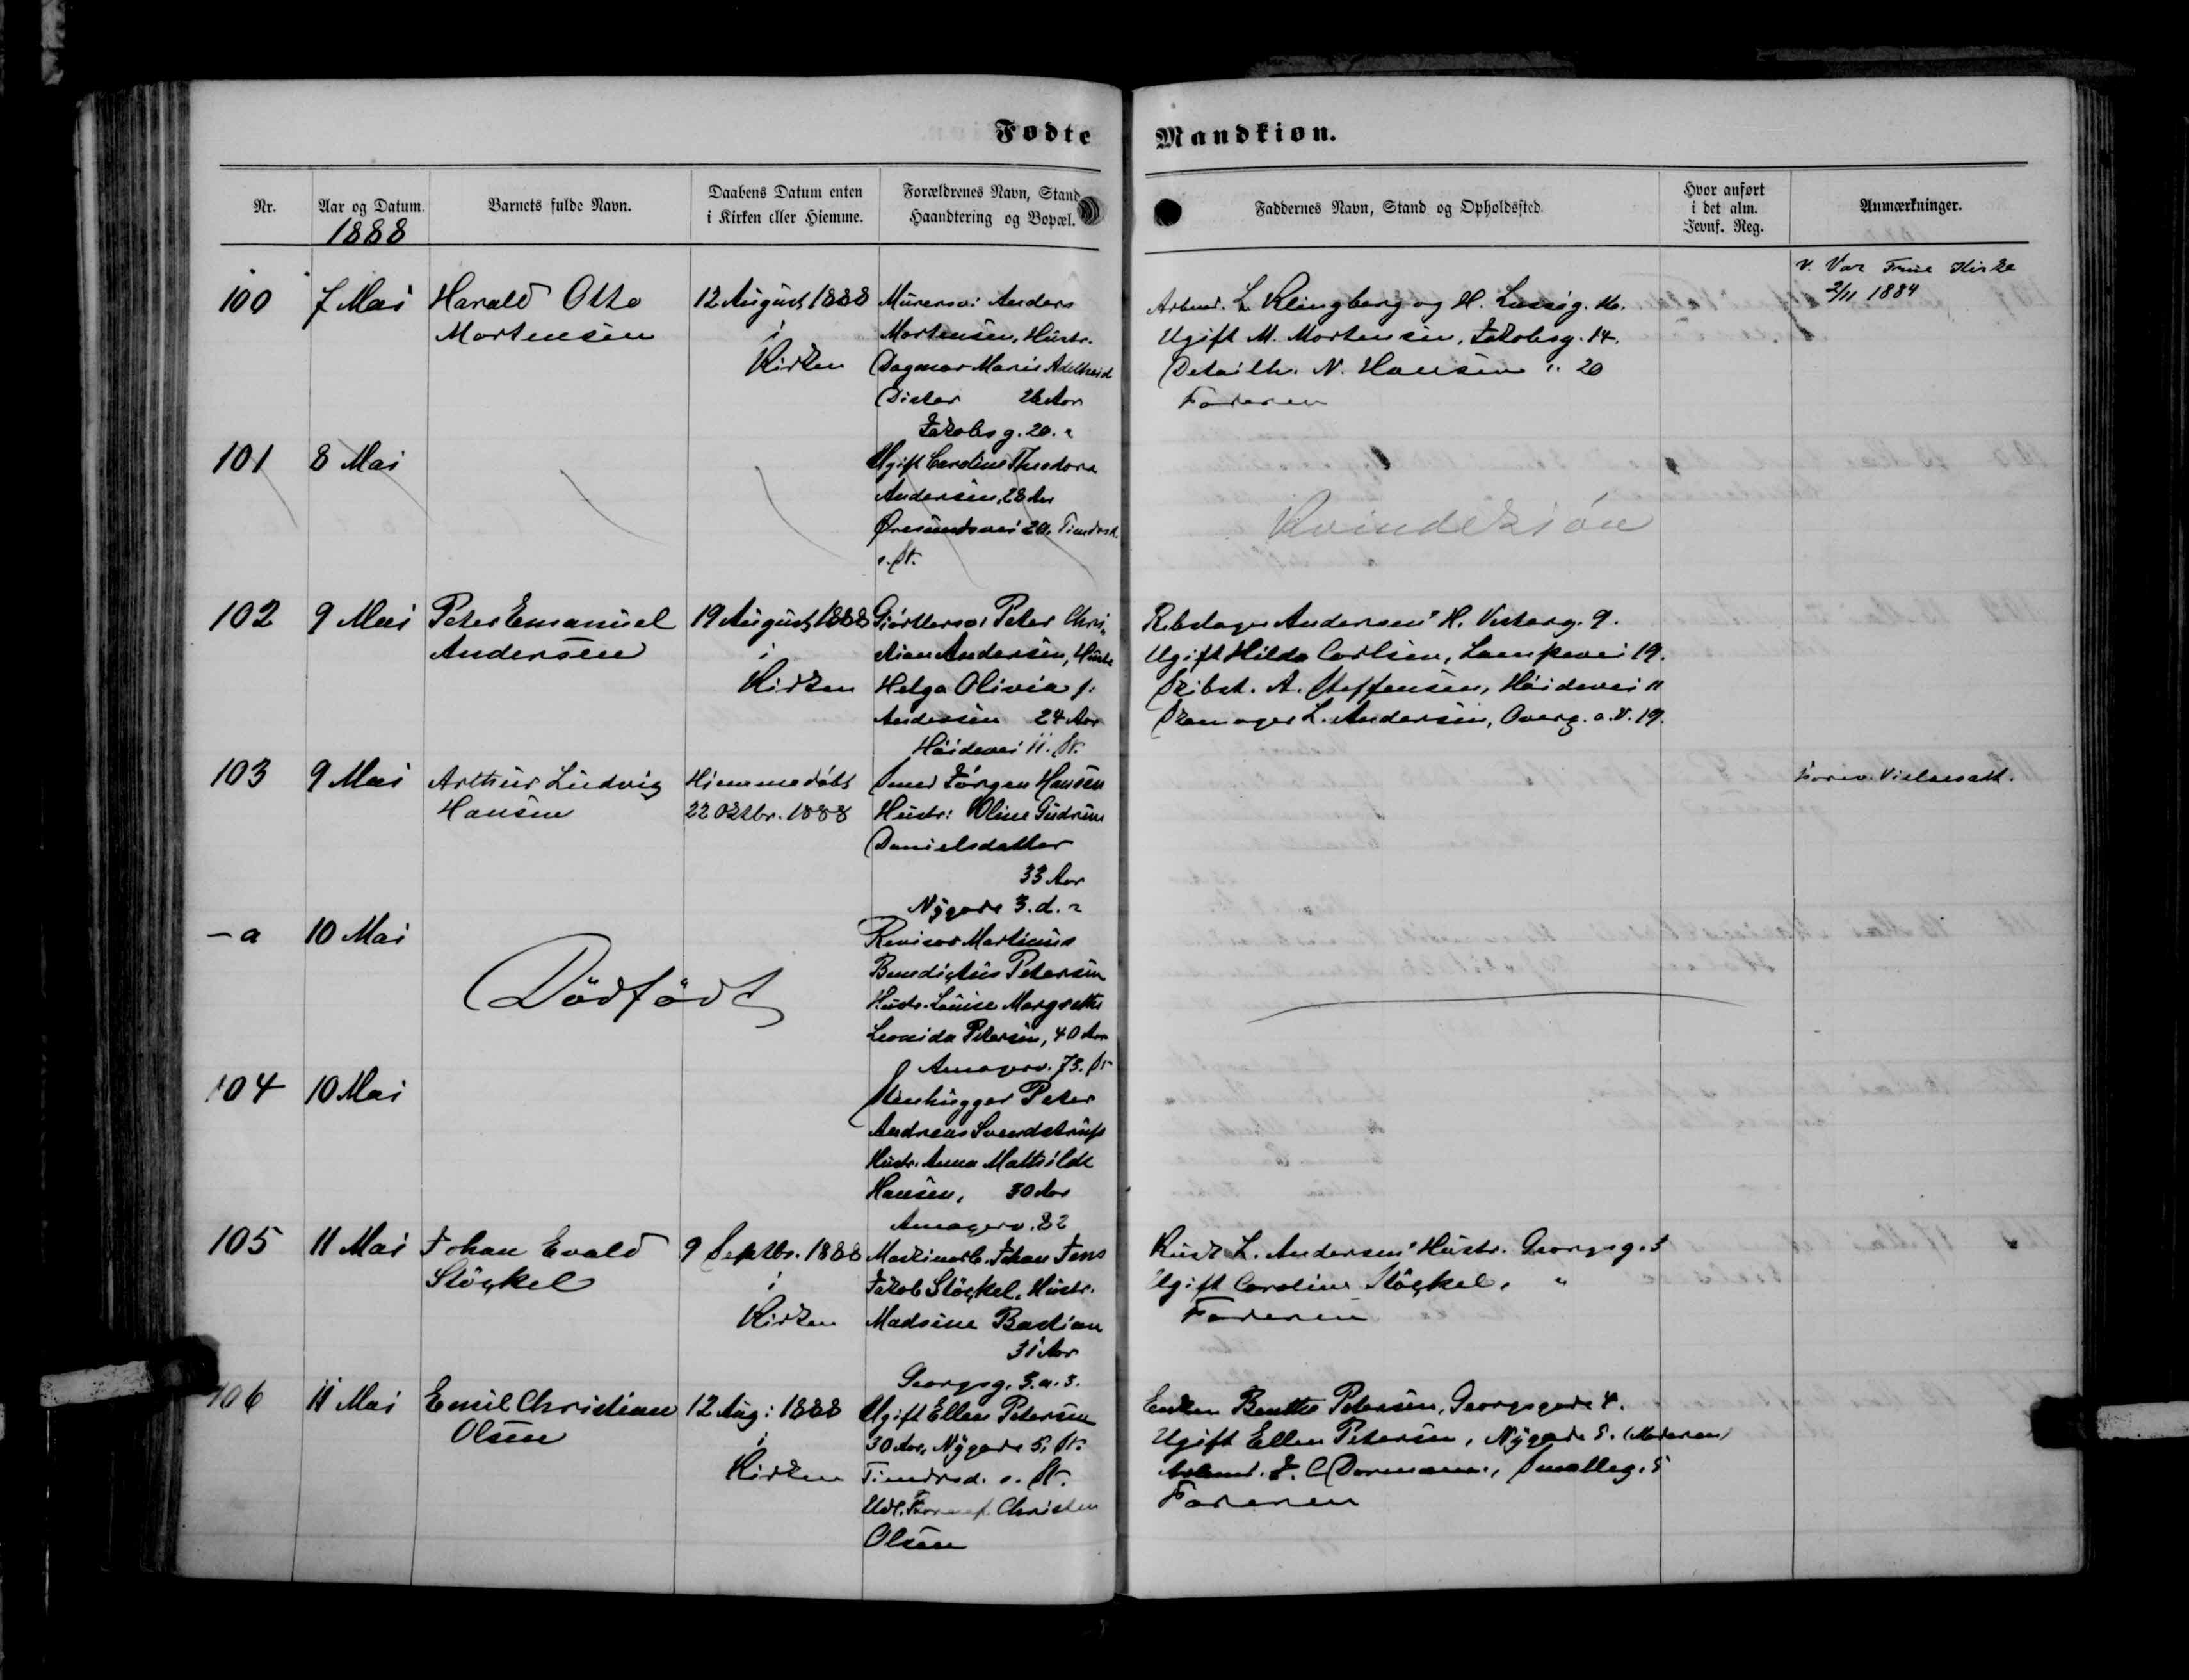 Fødte Mandkiøn.
Nr.
Aar og Datum.
1888
Barnets fulde Navn.
Daabens Datum enten
i Kirken eller Hiemme.
Forældrenes Navn, Stand
Haandtering og Bopæl.
Faddernes Navn, Stand og Opholdssted.
Hvor anført
i det alm.
Jevnf. Reg.
Anmærkninger.
100
7 Mai
Harald Otto
Mortensen
12 August 1888
i
Kirken
Murersv: Anders
Mortensen, Hustr.
Dagmar Marie Adelheid
Dister 26 Aar
Jakobsg. 20.
Arbmd. L Klingberg og H.
Ugift M. Mortensen, Jakobsg. 14.
Detailh. N. Hansen " 20
Faderen
V. Vor Frue Kirke
2/11 1884
101
8 Mai
Ugift Caroline Theodora
Andersen, 28 Aar
Øresundsvei 20.
s. St.
Kvindekiön
102
9 Mai
Peter Emanuel
Andersen
19 August 1888
i
Kirken
Peter Chri,,
stian Andersen, Hustr
Helga Olivia f:
Andersen 24 Aar
Höidevei 11. St.
Andersens H. Vesterg. 9.
Ugift Hilda Carlsen, Lampevei 19.
Skibst. A. Steffensen, Höidevei 11
Skomager L. Andersen, Overg. o. V. 19.
103
9 Mai
Arthur Ludvig
Hansen
Hiemmedöbt
22 Oktbr. 1888
Smed Jørgen Hansen
Hustr: Oline Gudrun
Danielsdatter
33 Aar
Nÿgade 3. d.
Vielsesatt.
- a
10 Mai
Dödfödt
Revisor Martinus
Benedictus Petersen
Hustr. Louise Margrethe
Leonida Petersen, 40 Aar
Amagerv. 73. St
104
10 Mai
Stenhugger Peter
Andreas Svendstrup
Hustr. Anna Mathilde
Hansen, 30 Aar
Amagerv. 82
105
11 Mai
Johan Evald
Stöckel
9 Septbr. 1888
i
Kirken
Maskinarb. Johan Jens
Jakob Stöckel, Hustr.
Madsine Bastian
31 Aar
Georgsg. 3. a. 3.
Kusk L. Andersens Hustr. Georgsg. 3
Ugift Caroline Stöckel, "
Faderen
106
11 Mai
Emil Christian
Olsen
12 Aug: 1888
i
Kirken
Ugift Ellen Petersen
30 Aar, Nÿgade 5, St.
s. St.
Christen
Olsen
Enken Benthe Petersen, Georgsgade 4.
Ugift Ellen Petersen, Nÿgade 5. (Moderen)
Arbmd. J. C Dormann, Smalleg. 5
Faderen